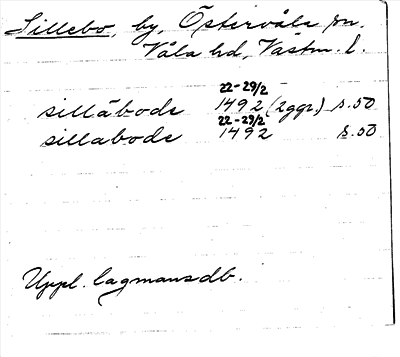 Sillebo, by, Östervåla sn.
Våla hd, Västm. l.
22-29/2
sillábode 1492 (2ggr.) s.50
22-29/2
sillabode 1492 s.50
Uppl. lagmansdb.